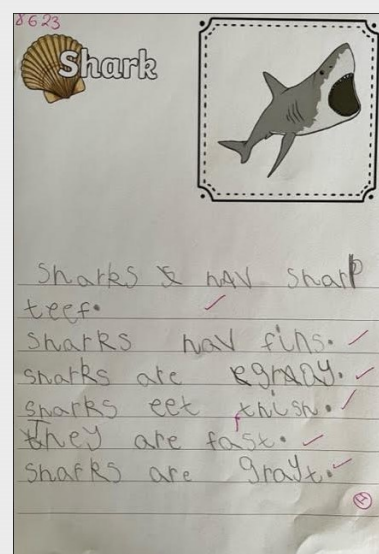 8 6 23
Shark
Sharks hav sharp
teef.
Sharks hav fins.
sharks are gray.
sharks eet fhish.
they are fast.
sharks are grayt.
H